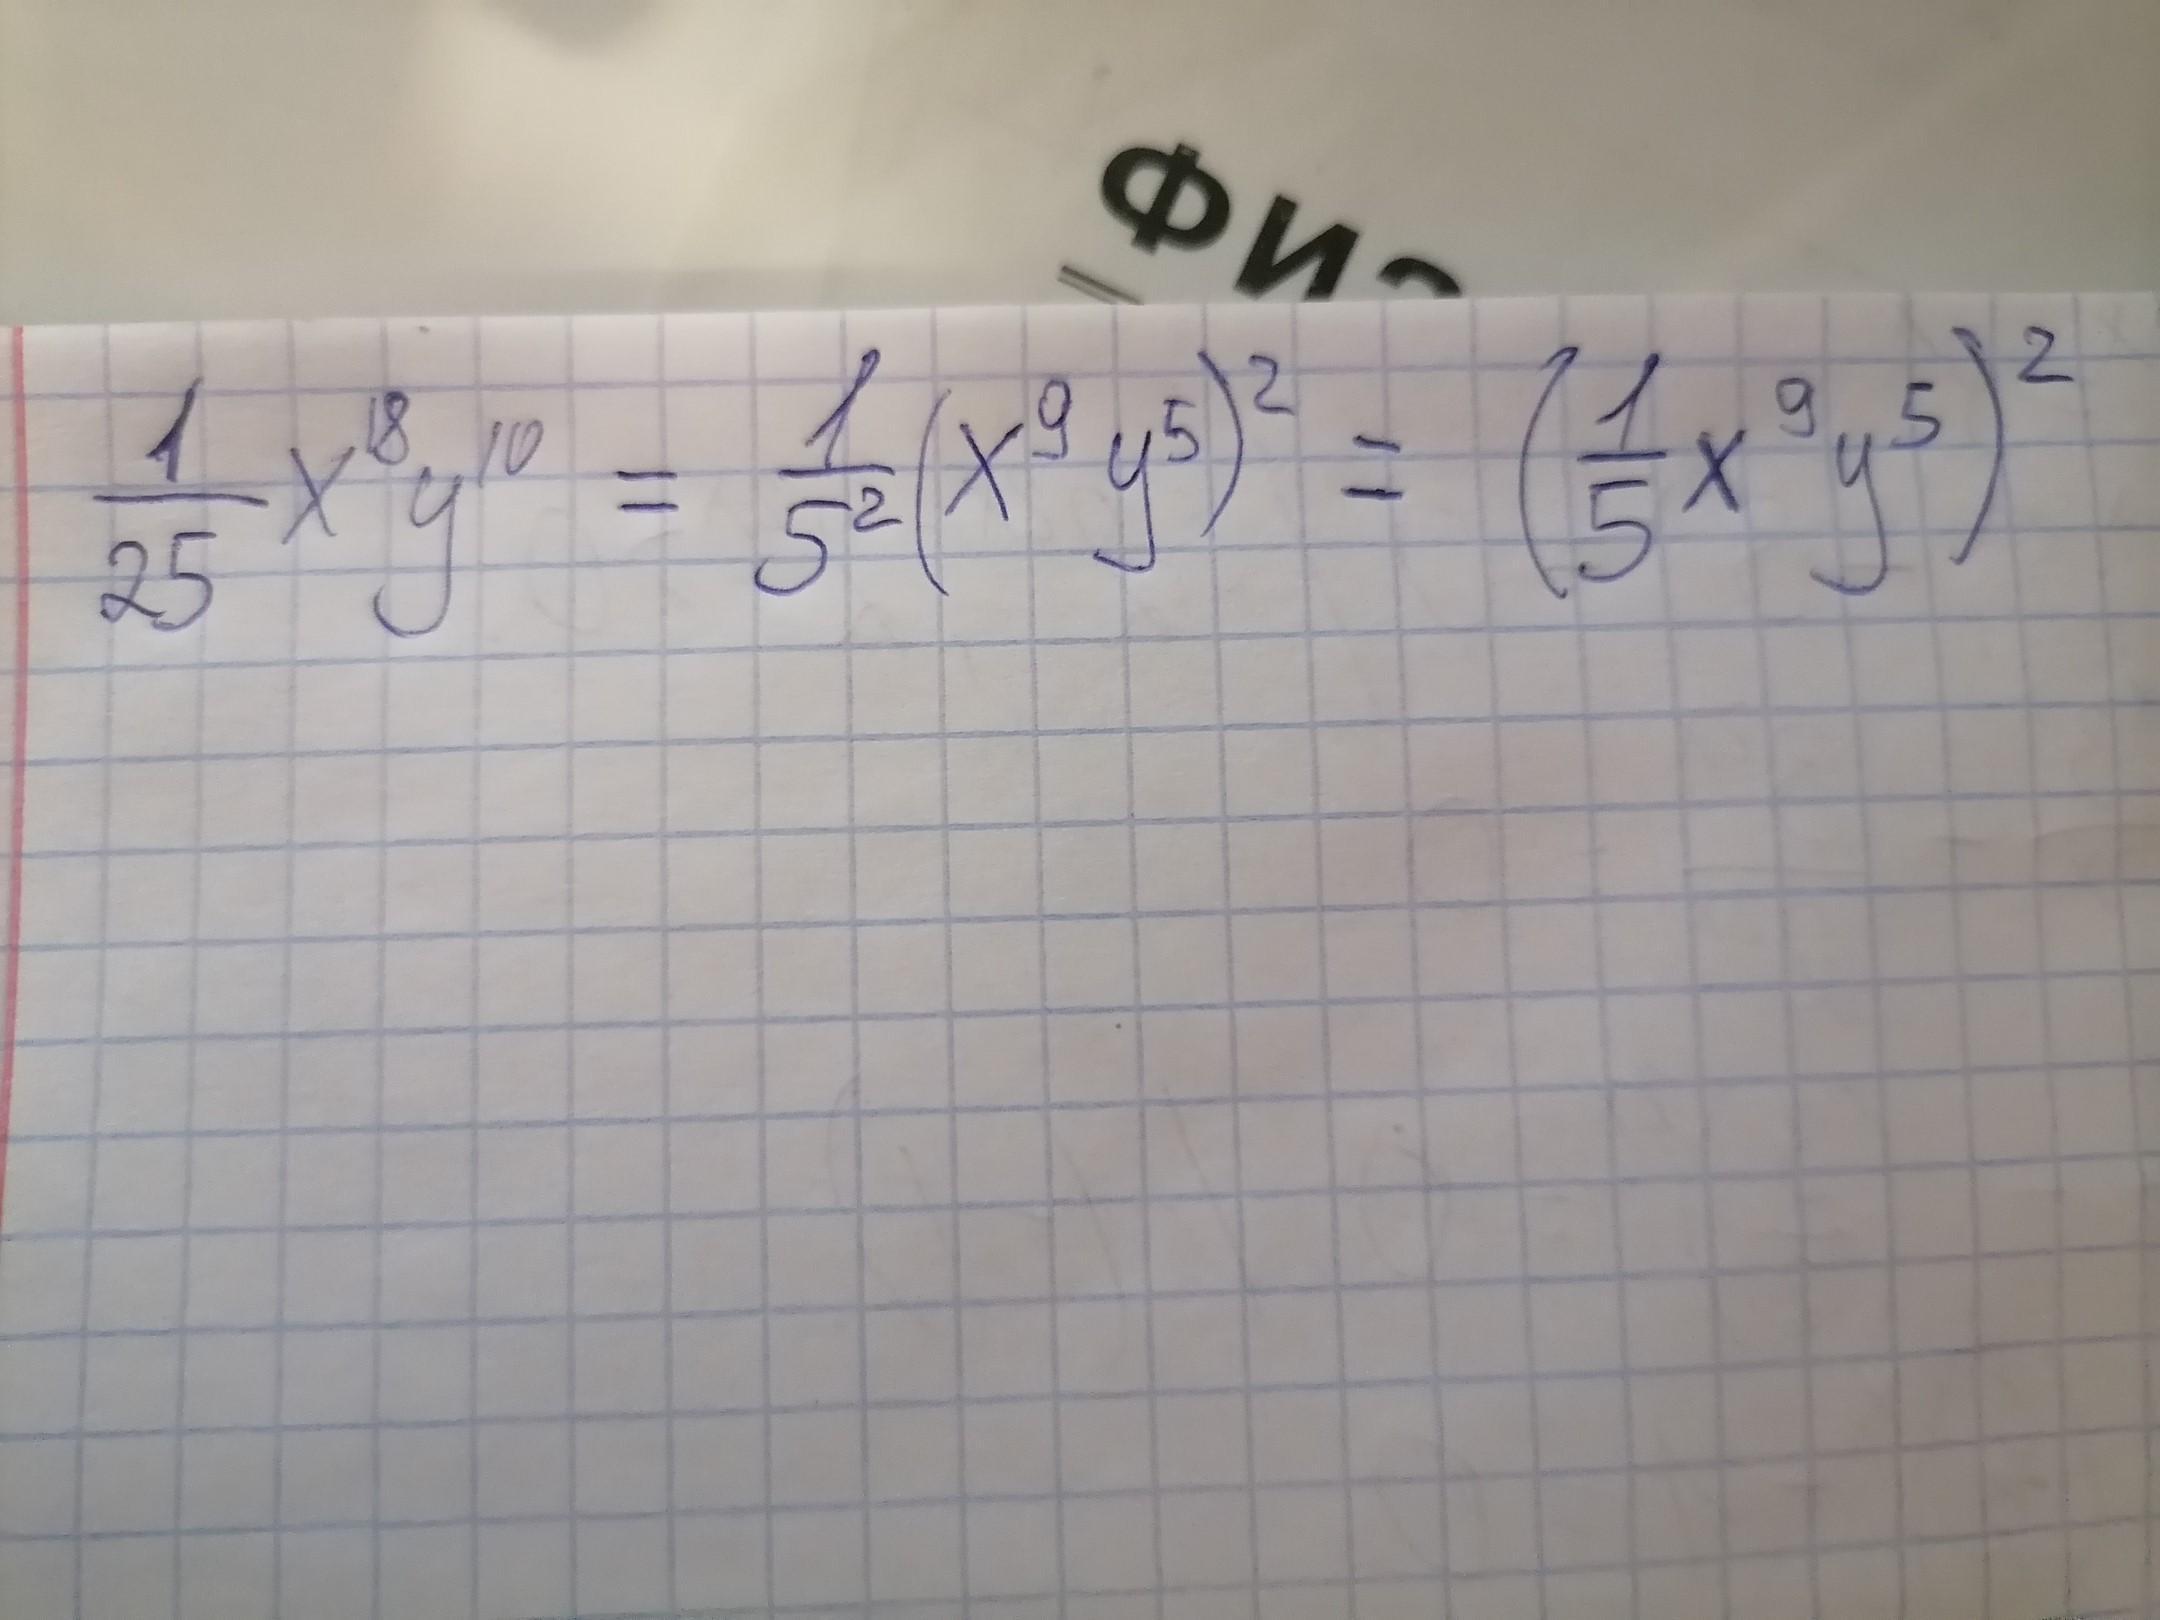 ФИЗ
1/25 x¹⁸y¹⁰ = 1/5² (x⁹y⁵)² = (1/5 x⁹y⁵)²